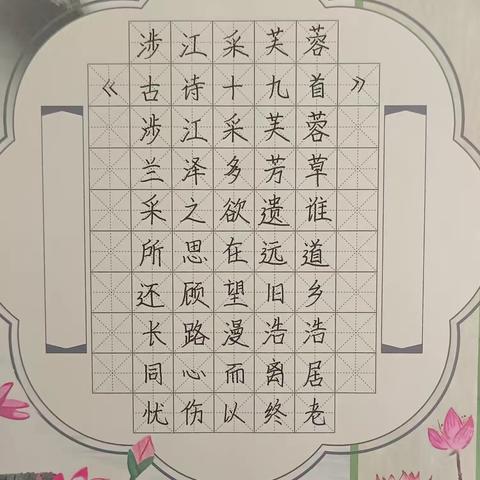 涉江采芙蓉
《古诗十九首》
涉江采芙蓉
兰泽多芳草
采之欲遗谁
所思在远道
还顾望旧乡
长路漫浩浩
同心而离居
忧伤以终老